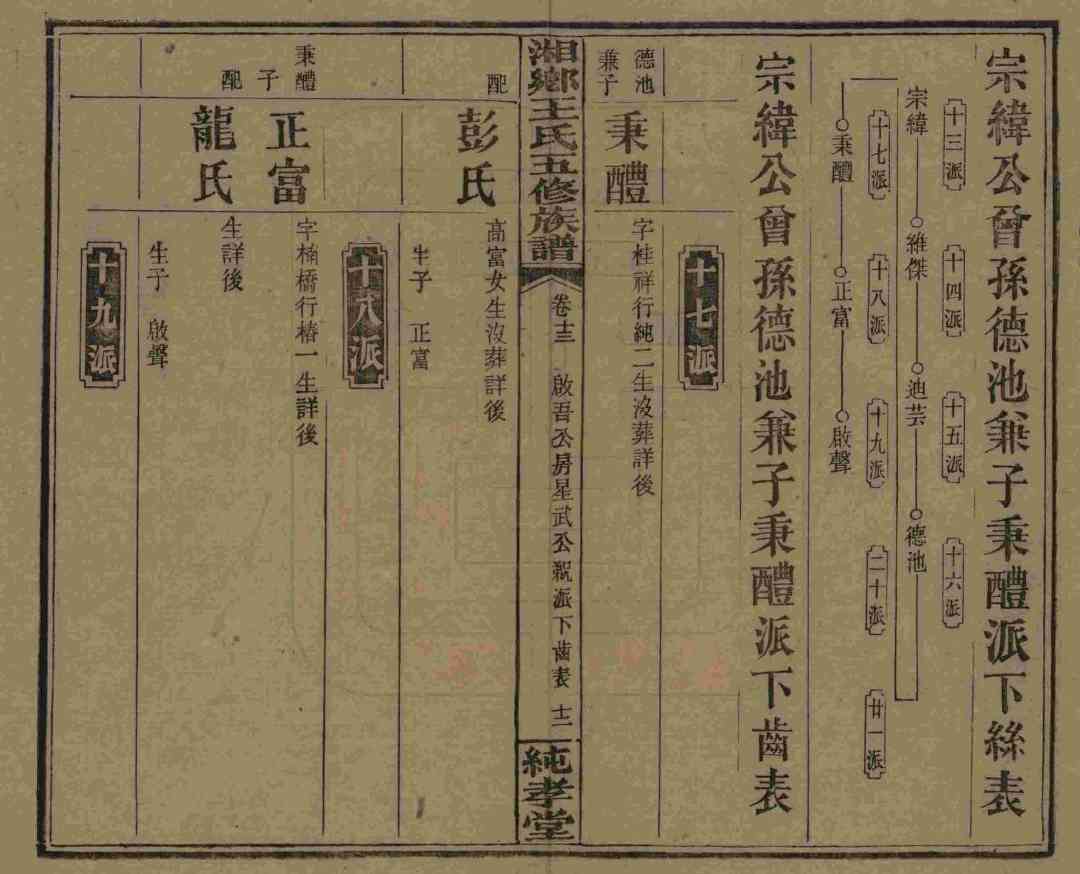 宗緯公曾孫德池兼子秉醴派下絲表
十三派
十四派
十五派
十六派
宗緯
維傑
迪芸
德池
十七派
十八派
十九派
二十派
廿一派
秉醴
正富
啟聲
宗緯公曾孫德池兼子秉醴派下齒表
十七派
德池
兼子
秉醴
字桂祥行純二生沒葬詳後
湘鄉王氏五修族譜
卷十三
啟吾公房星武公派下齒表
十二
純孝堂
配
彭氏
高富女生沒葬詳後
生子 正富
十八派
秉醴
子
正富
字楠橋行椿一生詳後
配
龍氏
生詳後
生子 啟聲
十九派